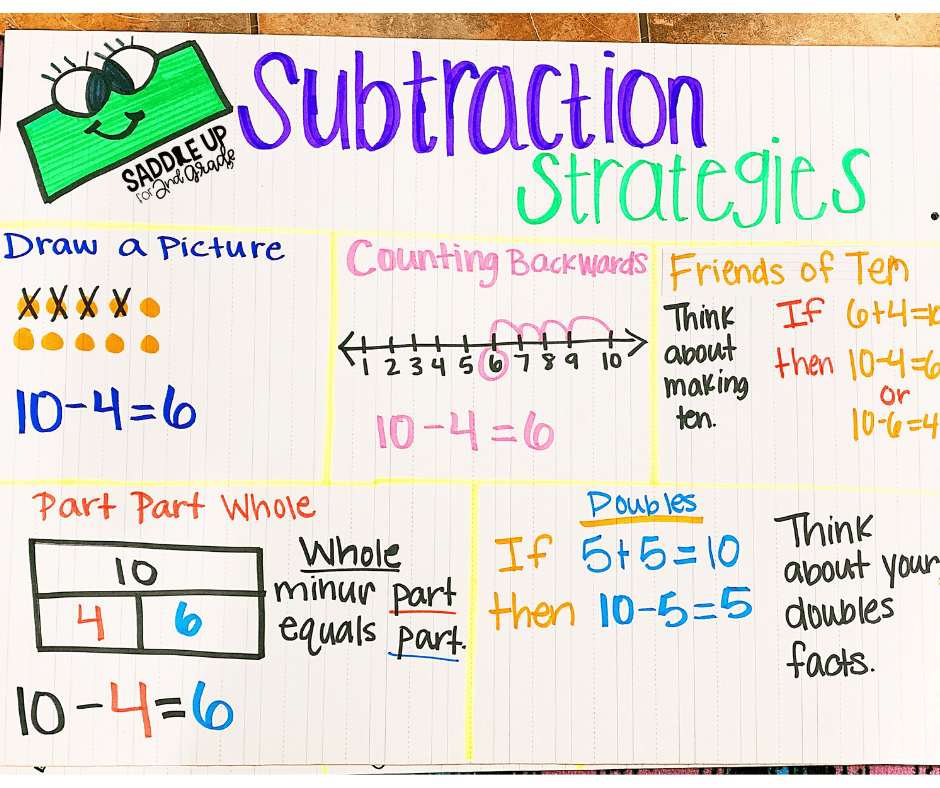 Subtraction
Strategies
SADDLE UP
for 2nd Grade
Draw a Picture
10-4=6
Counting Backwards
1 2 3 4 5 6 7 8 9 10
10-4=6
Friends of Ten
Think
about
making
ten.
If 6+4=10
then 10-4=6
or
10-6=4
Part Part Whole
10
4 6
Whole
minur part
equals part.
10-4=6
Doubles
If 5+5=10
then 10-5=5
Think
about your
doubles
facts.